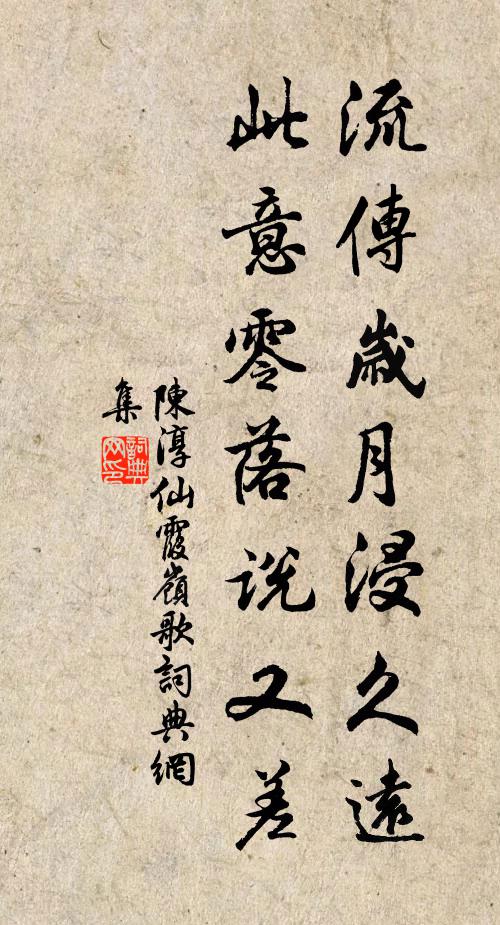 流傳歲月浸久遠
此意零落説又差
陳淳仙霞嶺歌詞典網
集
詞典
网印